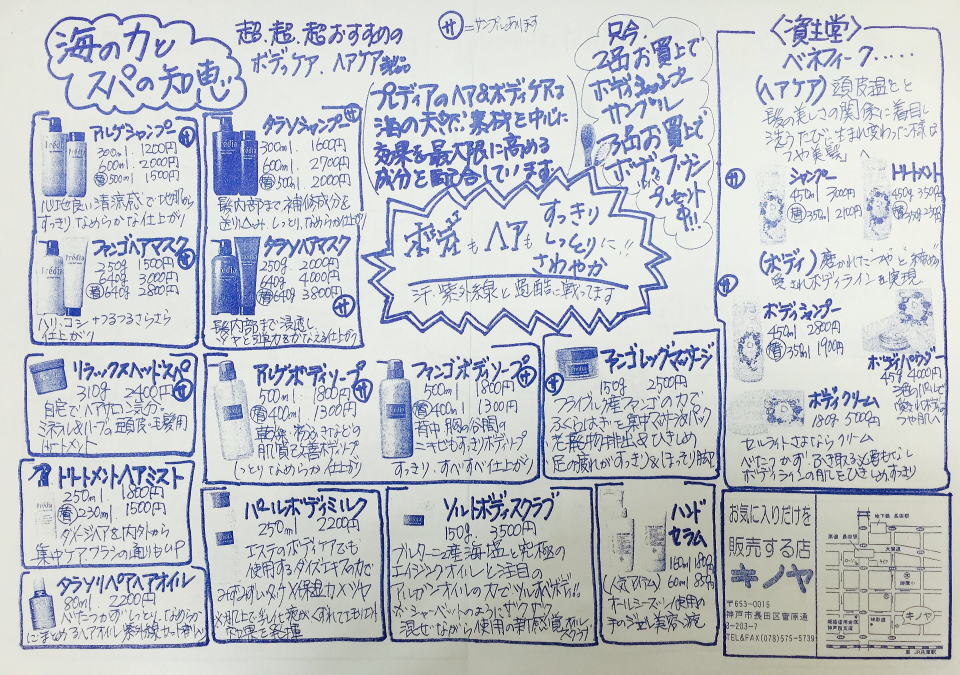 海の力と
スパの知恵
超、超、超おすすめの
ボディケア、ヘアケア製品
サ=サンプルあります
プレディアのヘア&ボディケアは
海の天然素材を中心に
効果を最大限に高める
成分を配合しています。
只今、
2品お買上で
ボディシャンプー
サンプル
3品お買上で
ボディブラシ
プレゼント
中!!
ボディもヘアも
すっきり
しっとりに!!
さわやか
汗・紫外線と過酷に戦ってます
アルゲシャンプー
300ml. 1200円
600ml. 2000円
詰500ml 1500円
心地良い清涼感で地肌から
すっきりなめらかな仕上がり
タラソシャンプー サ
300ml. 1600円
600ml 2700円
2000円
髪内部まで補修成分を
送り込み、しっとりなめらか仕上がり
ファンゴヘアマスク
250g 1500円
640g 3000円
詰640g 2800円
ハリ、コシ+つるつるさらさら
仕上がり
タラソヘアマスク
250g 2000円
640g 4000円
詰640g 3800円 サ
髪内部まで浸透し
ツヤと弾力をかなえる仕上がり
リラックスヘッドスパ サ
310g 2400円
自宅でヘアサロン気分。
ミネラル&ハーブの頭皮・毛髪用
トリートメント
アルゲボディソープ サ
500ml. 1800円
詰400ml. 1300円
肌質改善ボディソープ
しっとりなめらか仕上がり
ファンゴボディソープ サ
500ml. 1800円
詰400ml 1300円
背中、胸の谷間の
ニキビもすっきりボディソープ
すっきり、すべすべ仕上がり
ファンゴレッグマッサージ
サ 150g 2500円
フライブルグ産ファンゴの力で
ふくらはぎに集中マッサージ&パック
老廃物排出&ひきしめ
足の疲れがすっきり&ほっそり脚
トリートメントヘアミスト
250ml. 1800円
詰230ml. 1500円
ダメージヘアを内外から
集中ケア ブラシの通りもUP
タラソリペアヘアオイル
80ml. 2200円
べたつかず、しっとり、なめらか
にまとめるヘアオイル 紫外線カット
パールボディミルク
250ml 2200円
エステのボディケアでも
使用するダイズエキスの力で
ソルトボディスクラブ
150g. 3500円
ブルターニュ産海塩と究極の
エイジングオイルと注目の
アルガンオイルの力でツルすべボディ!!
※シャーベットのようにザクザク
混ぜながら使用の新感覚オイル
スクラブ
ハンド
セラム
(人気アイテム) 60ml 850円
オールシーズン使用の
手のジェル美容液
〈資生堂〉
ベネフィーク......
(ヘアケア) 頭皮温度と
髪の美しさの関係に着目し
洗うたび、生まれ変わった様な
つや美髪
サ シャンプー
450ml 3000円
詰350ml 2100円
トリートメント
450g 3500円
(ボディ) 磨かれたつやと
愛されボディラインを実現
サ ボディシャンプー
450ml 2800円
詰350ml 1900円
ボディパウダー
45g 4000円
ボディクリーム
180g 5000円
セルライトさよならクリーム
べたつかず、ふき取る必要もなし
ボディラインの肌をひきしめすっきり
お気に入りだけを
販売する店
キノヤ
〒653-0015
神戸市長田区菅原通
3-203-7
TEL&FAX(078)575-5739
地下鉄 長田駅
キノヤ
至 JR兵庫駅